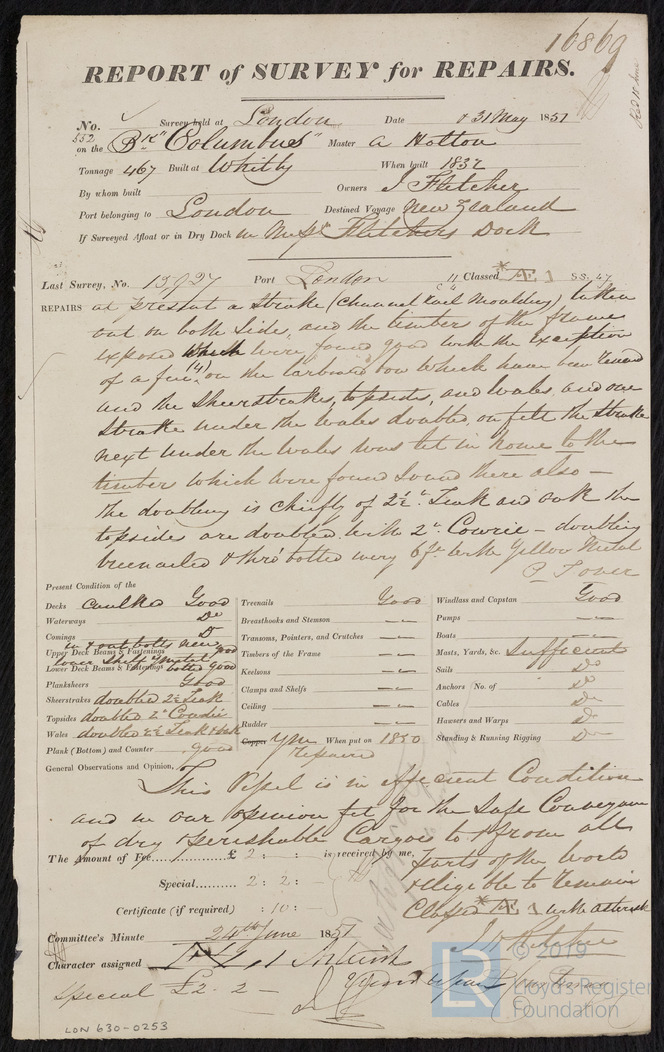 16869
REPORT of SURVEY for REPAIRS.
No. 552 Survey held at London Date 31 May 1851
on the Bk "Columbus" Master A Holton
Tonnage 467 Built at Whitby When built 1832
By whom built Owners J Fletcher
Port belonging to London Destined Voyage New Zealand
If Surveyed Afloat or in Dry Dock in Messrs Fletchers Dock
Last Survey, No. Port London Classed * Æ 1 SS. 47
REPAIRS at present a strake (Channel rail moulding) taken
out on both sides, and the timbers of the frame
exposed which were found good with the exception
of a few (4) on the larboard bow which have been renewed
and the Sheerstrakes, topsides, and wales and one
Strake under the wales doubled, on felt the strake
next under the wales was let in home to the
timbers which were found sound there also —
The doubling is chiefly of 2½" Teak and oak the
topsides are doubled with 2" Cowrie - doubling
treenailed & thro' bolted every 6 ft with Yellow Metal
Present Condition of the
Decks caulked Good
Waterways Do
Comings Do
Upper Deck Beams & Fastenings in & out bolts new good
Lower Deck Beams & Fastenings lower shelf metal bolted good
Planksheers Good
Sheerstrakes doubled 2½ Teak
Topsides doubled 2" Cowdie
Wales doubled 2½ Teak & oak
Plank (Bottom) and Counter good
Treenails Good
Breasthooks and Stemson —
Transoms, Pointers, and Crutches —
Timbers of the Frame —
Keelsons —
Clamps and Shelfs —
Ceiling —
Rudder —
Copper YM When put on 1850
Repaired
Windlass and Capstan Good
Pumps —
Boats —
Masts, Yards, &c. Sufficient
Sails Do
Anchors No. of Do
Cables Do
Hawsers and Warps Do
Standing & Running Rigging Do
General Observations and Opinion,
This Vessel is in efficient Condition
and in our opinion fit for the safe Conveyance
of dry & perishable Cargoes to & from all
parts of the World
& eligible to remain
Classed * Æ 1 with asterisk
The Amount of Fee £ 2 : : is received by me,
Special 2 : 2 : -
Certificate (if required) : 10 : -
Committee's Minute 24th June 1851
Character assigned
Special £2 . 2 —
LON 630-0253
LR © 2019
Lloyd's Register
Foundation